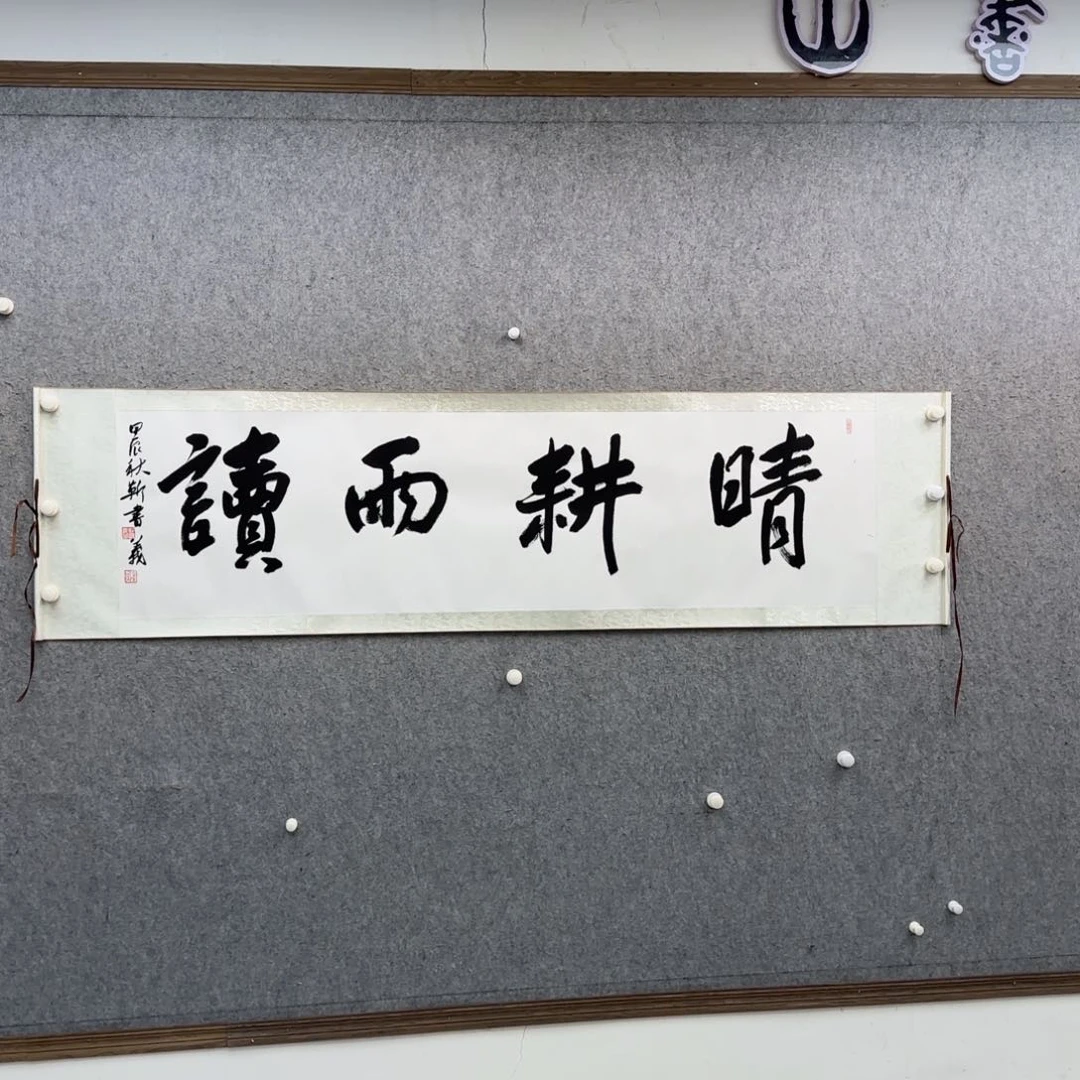 晴耕雨讀
甲辰秋靳書義
山書